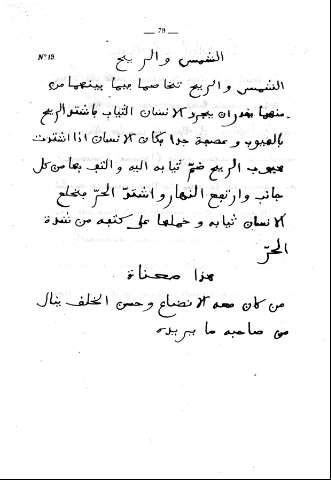 — 79 —
N° 19.
الشمس والريح
الشمس والريح تخاصما فيما بينهما من
منهما يقدر ان يجرد الانسان الثياب فاشتد الريح
بالهبوب و عصفة جدا فكان الانسان اذا اشتدت
هبوب الريح ضمّ ثيابه اليه والتف بها من كل
جانب وارتفع النهار واشتدّ الحرّ فخلع
الانسان ثيابه و حملها على كتفه من شدة
الحرّ
هذا معناة
من كان معه الاتضاع و حسن الخلف ينال
من صاحبه ما يريده